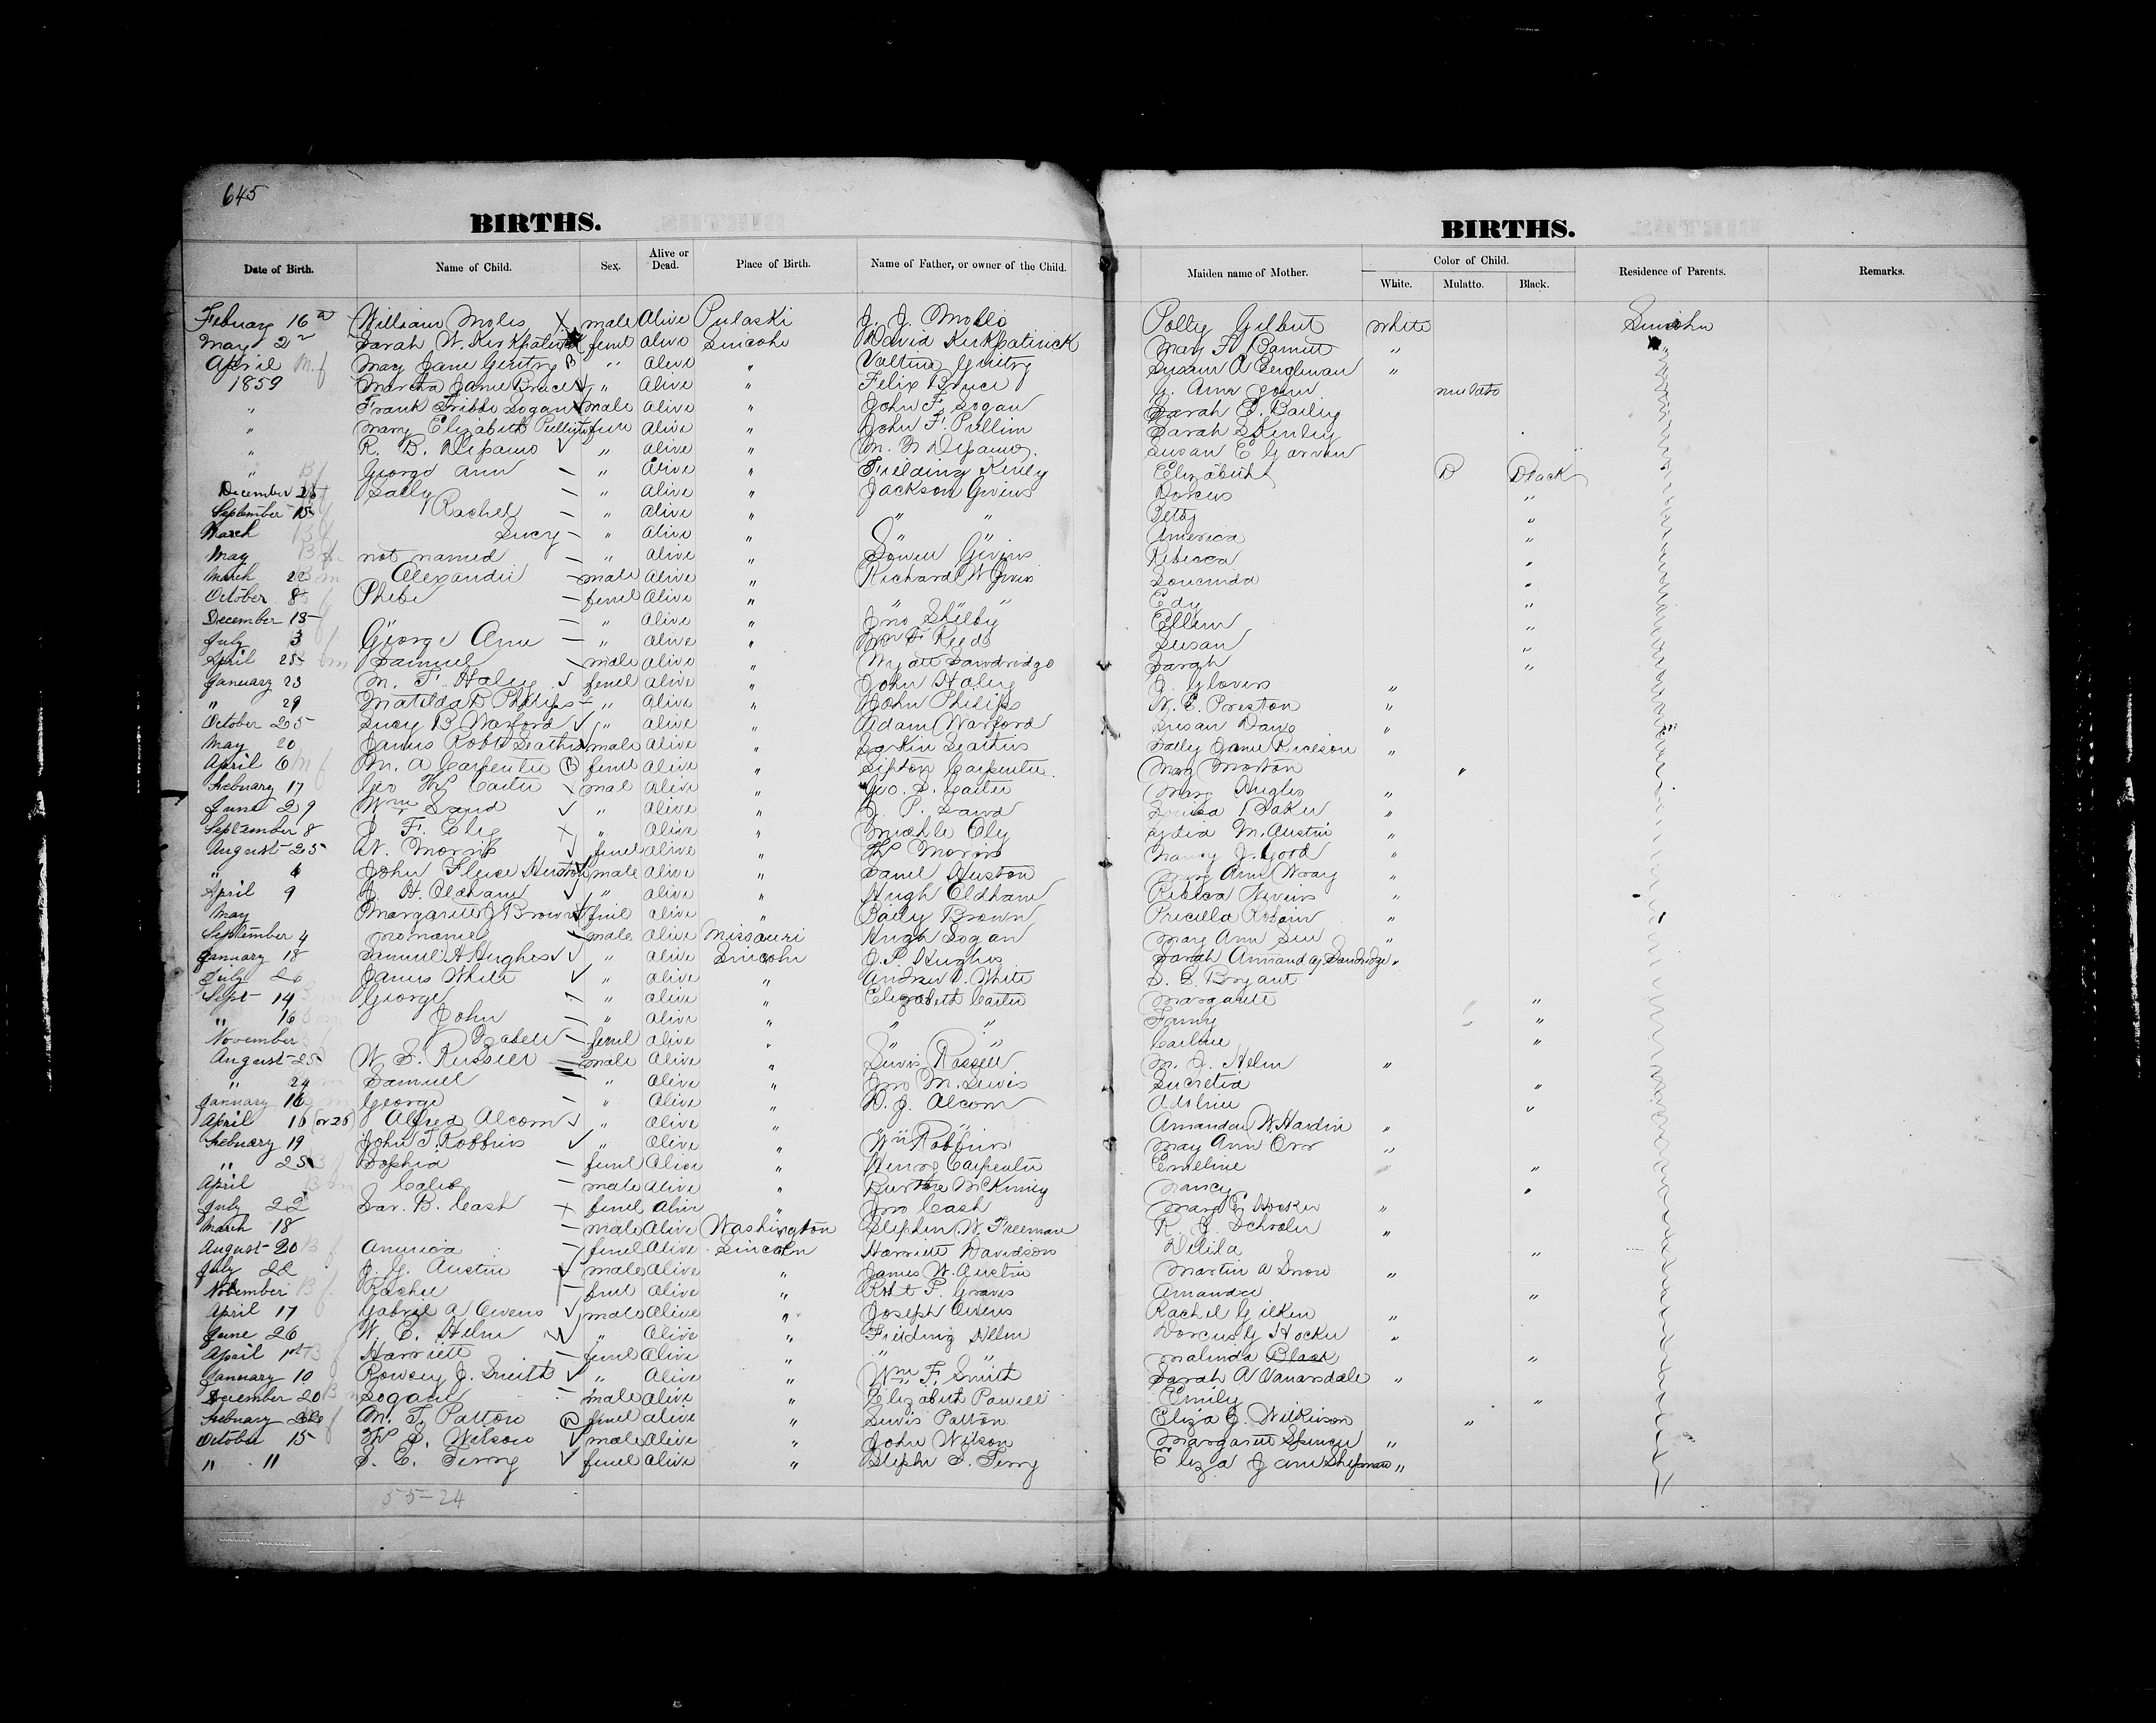 645
BIRTHS. BIRTHS.
Date of Birth. Name of Child. Sex. Alive or Dead. Place of Birth. Name of Father, or owner of the Child. Maiden name of Mother. Color of Child. White. Mulatto. Black. Residence of Parents. Remarks.
Febuary 16 William Moles X male Alive Pulaski J. J. Polly Gilbert white Lincoln
May 2 Sarah W. Kirkpatrick feml alive Lincoln David Kirkpatrick May F. Barnett "
April May Jane Gentry B " alive " Valtine Gentry Susan A Engleman "
1859 Martha Jane Bruce " alive " Felix Bruce G. Ann mulato
" Frank Tribbe Logan male alive " John F. Logan Sarah E. Bailey
" Mary Elizabeth Pullim fem alive " John F. Pullim Sarah
" R. B. Depauw " alive " M. N Depauw. Susan E Garvin
" George Ann — " Alive " Fielding Elizabeth B Black
December 25 Sally — " alive " Jackson Givins Dorcus "
September 15 Rachel — " alive " " " Betty "
March Lucy — " alive " " " America "
May not named — " alive " Givins Rebecca "
March 22 Alexander — male alive " Richard W Givins Loucinda "
October 8 Phebe — feml alive " " " Edy "
December 15 " — " alive " Jno Shelby Ellen "
July 3 George Ann — " alive " F. Reed Susan "
April 25 Samuel male alive " Wyatt Sandridge Sarah "
January 23 M. F. Haley feml alive " John Haley J. Glovers "
" 29 Matilda D Phillips " alive " John Philips N. E. Preston "
October 205 Lucy B. Warford " alive " Adam Warford Susan "
May 20 James Robt male alive " Larkin Salley Jane "
April 6 M. A Carpenter B feml alive " Tipton Carpenter Mary Morton "
Febuary 17 Geo W Carter mal alive " Geo. S. Carter Mary Hughes "
June 29 Wm Land " alive " J. P. Land Louisa Baker "
September 8 J. F. Ely X " alive " Ely Lydia M. Austin "
August 25 N. Morris feml alive " W Morris Nancy J. Good "
" John Huston male alive " Huston Mary Ann Wray "
April 9 J. H. Oldham " alive " Hugh Oldham Rebeca Nevins "
May Margarett J Brown feml alive " Baily Brown Pricilla "
September 4 no name male alive Missouri Hugh Logan Mary Ann "
January 18 Samuel H Hughes " alive Lincoln J. P. Hughes Sarah Sandridge "
July James White " alive " Andrew White S. E. Bryant
Sept 14 George — " alive " Elizabeth Carter Margarett "
" 16 John — " alive " " " Fanny "
November — feml alive " " " Carline "
August 25 W. S. Russell male Alive " Lewis Russell M. J. Helm "
" 24 Samuel " alive " Jno M. Lewis Lucretia "
January 16 George — " Alive " D. J. Alcorn Adeline "
April 16 (or 26) Alfred Alcorn " Alive " " " Amanda W. Hardin "
Febuary 19 John T. Robbins " Alive " Wm Robbins May Ann Orr "
" 25 Sophia — feml Alive " Henry Carpenter Emeline "
April Caleb — male Alive " McKinney Nancy "
July 22 B. Cash feml Alive " Jno Cash Mary E. Hocker "
March 18 — male Alive Washington Stephen W. Freeman R. J. "
August 20 America — feml Alive Lincoln Harriett Davidson Delila "
July 22 J. G. Austin male Alive " James W. Austin Martin A Snow "
November Rachel — feml Alive " Robt P. Graves Amanda "
April 17 Gabrel A Owens male Alive " Joseph Owens Rachel Gilken "
June 26 W. E. Helm " Alive " Fielding Helm Dorcus G Hocker "
April 1st Harriett — feml Alive " " " Malinda Black "
January 10 J. Smith " Alive " Wm. F. Smith Sarah A Vanarsdale "
December 20 Logan — male alive " Elizabeth Powell Emily "
Febuary M. F. Patton B feml alive " Lewis Patton Eliza J. Wilkinson "
October 15 W S. Wilson male alive " John Wilson Margarett Spencer "
" 11 S. E. Terry feml alive " Stephn S. Terry Eliza Jane "
55-24